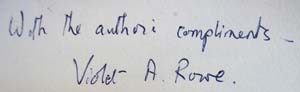 With the author's compliments –
Violet A. Rowe.